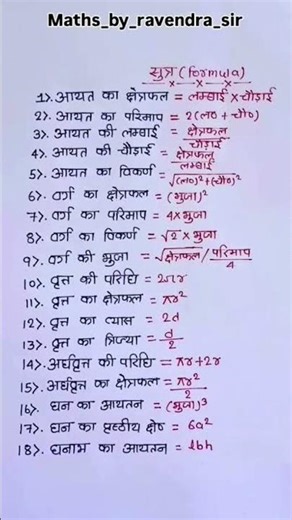 Maths_by_ravendra_sir
सुत्र (formula)
1>. आयत का क्षेत्रफल = लम्बाई × चौड़ाई
2>. आयत का परिमाप = 2(ल० + चौ०)
3>. आयत की लम्बाई = क्षेत्रफल / चौड़ाई
4>. आयत की चौड़ाई = क्षेत्रफल / लम्बाई
5>. आयत का विकर्ण = √(ल०)²+(चौ०)²
6>. वर्ग का क्षेत्रफल = (भुजा)²
7>. वर्ग का परिमाप = 4×भुजा
8>. वर्ग का विकर्ण = √2 × भुजा
9>. वर्ग की भुजा = √क्षेत्रफल / परिमाप/4
10>. वृत्त की परिधि = 2πr
11>. वृत्त का क्षेत्रफल = πr²
12>. वृत्त का व्यास = 2d
13>. वृत्त की त्रिज्या = d/2
14>. अर्धवृत्त की परिधि = πr+2r
15>. अर्धवृत्त का क्षेत्रफल = πr²/2
16>. घन का आयतन = (भुजा)³
17>. घन का पृष्ठीय क्षेत्र = 6a²
18>. घनाभ का आयतन = lbh